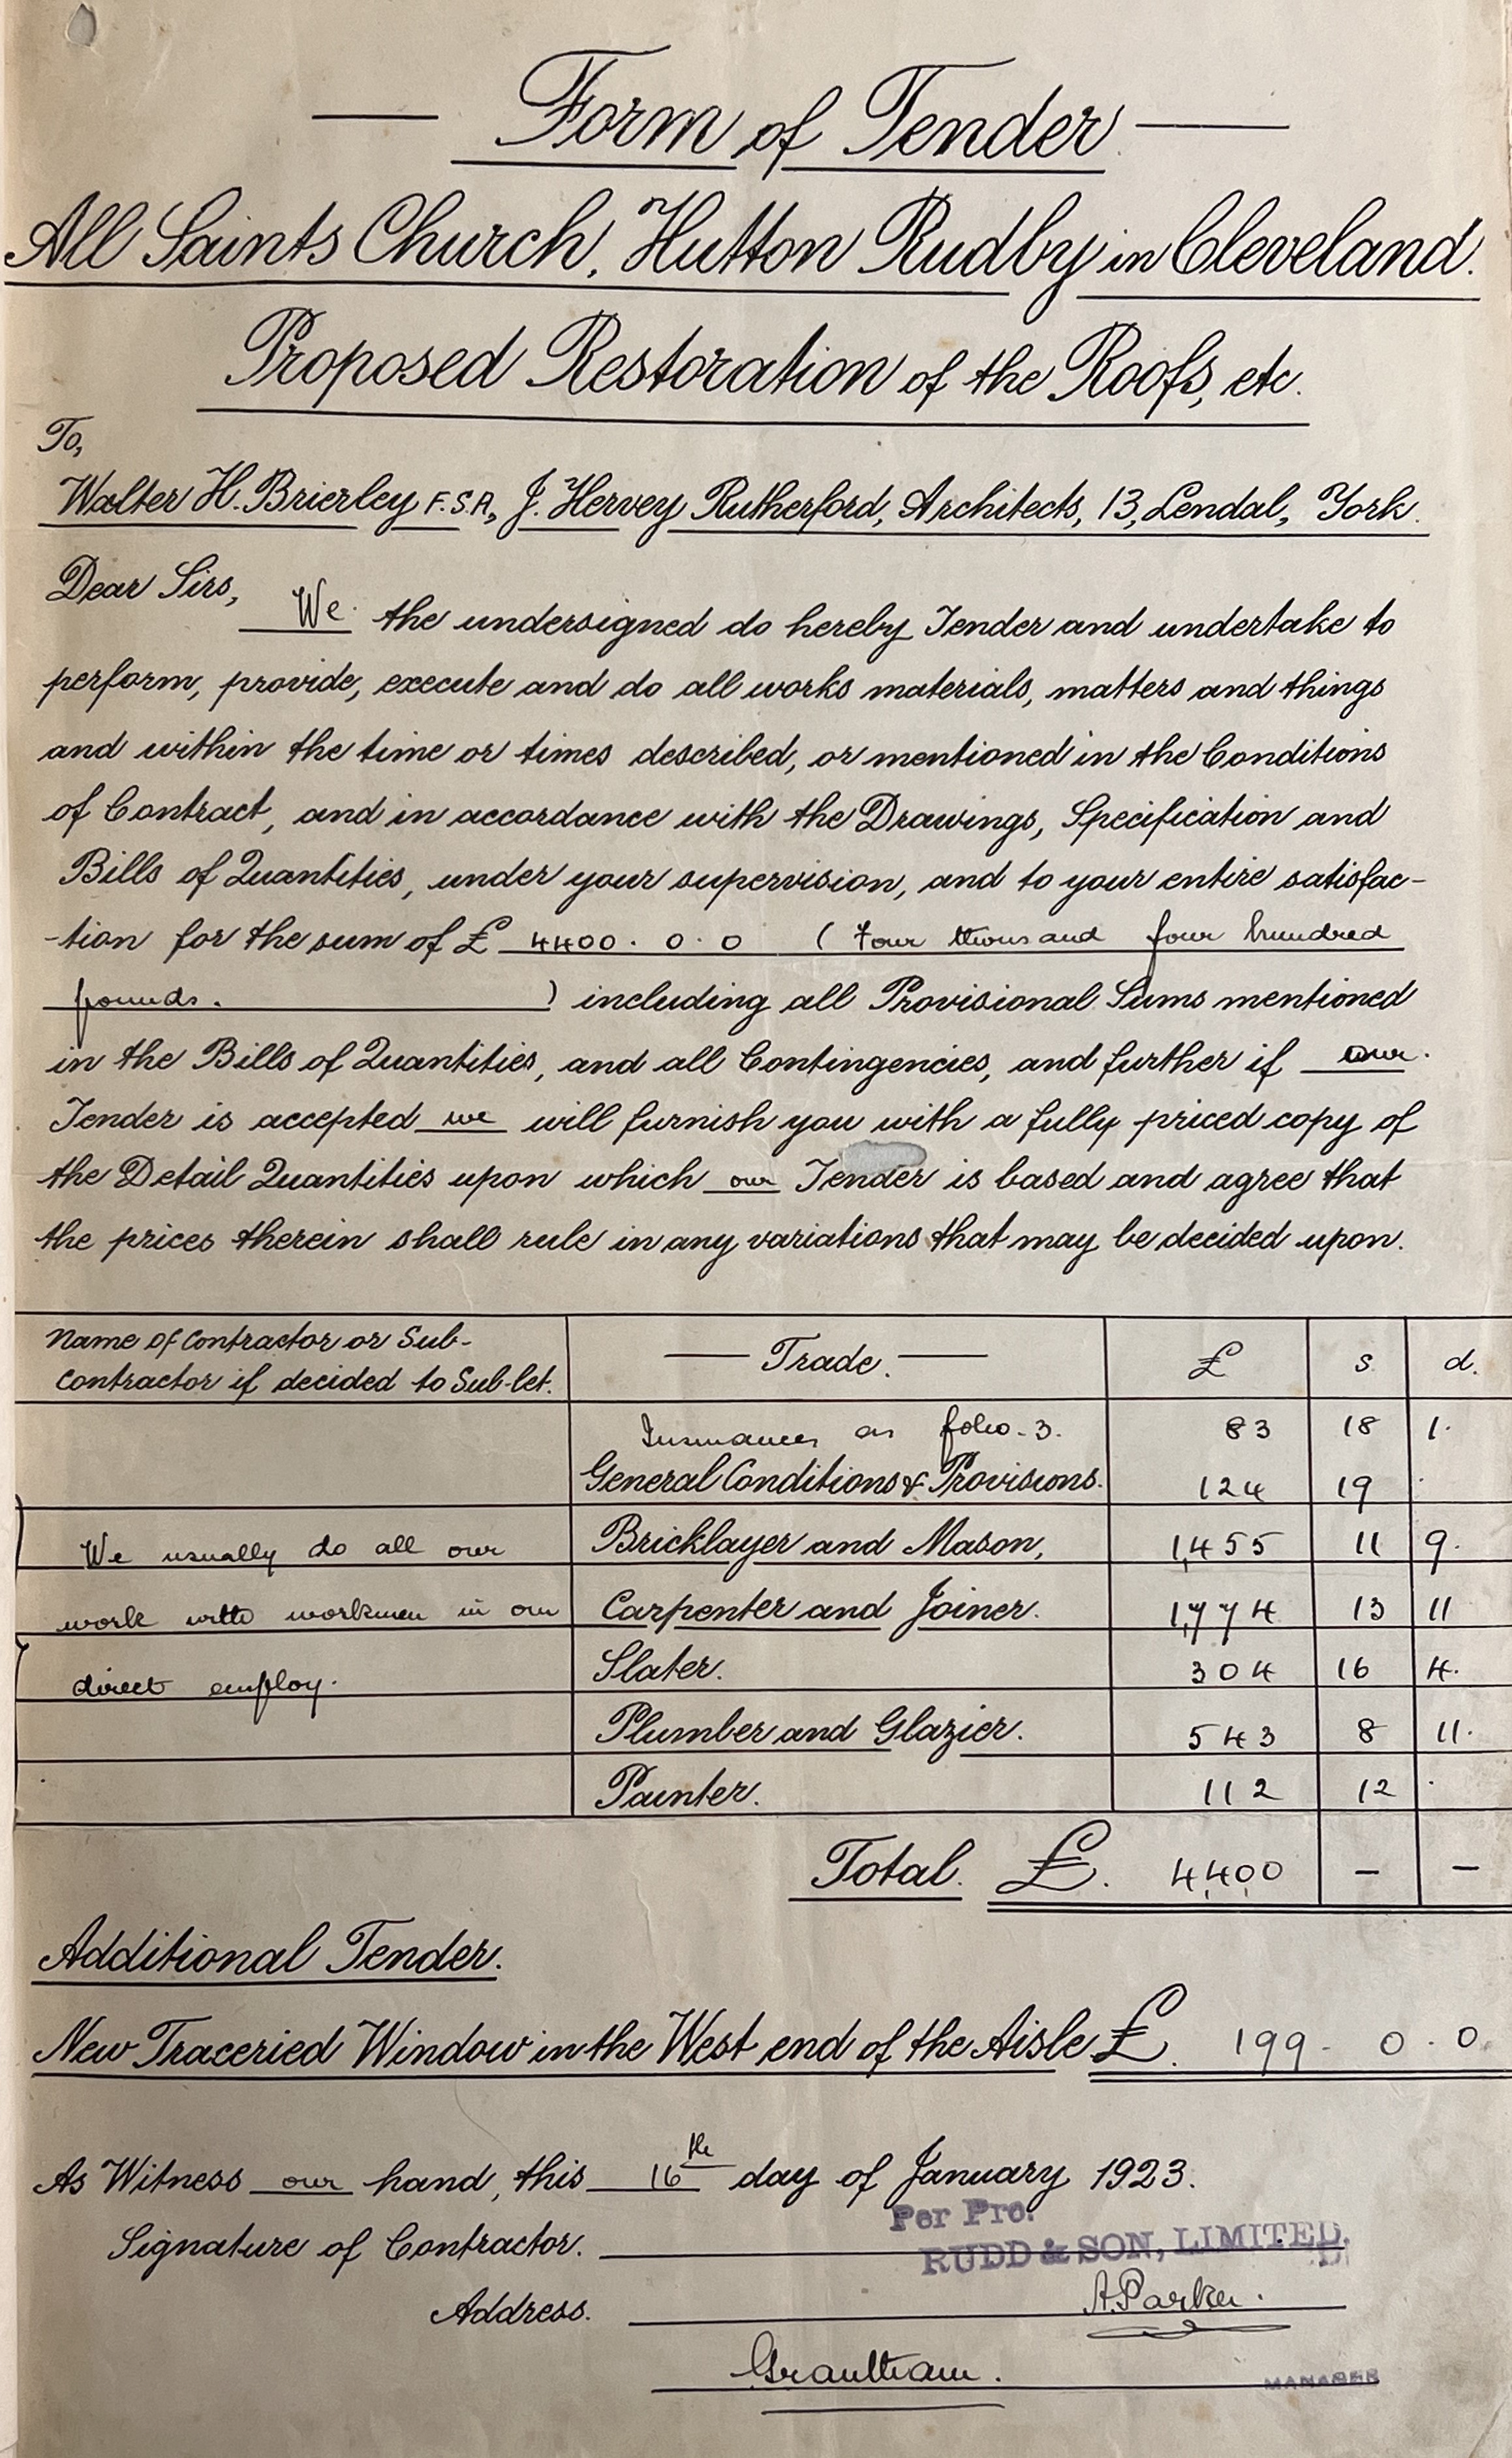 Form of Tender
All Saints Church, Hutton Rudby in Cleveland.
Proposed Restoration of the Roofs, etc.
To,
Walter H. Brierley F.S.A., J. Hervey Rutherford, Architects, 13, Lendal, York.
Dear Sirs,
We the undersigned do hereby Tender and undertake to
perform, provide, execute and do all works materials, matters and things
and within the time or times described, or mentioned in the Conditions
of Contract, and in accordance with the Drawings, Specification and
Bills of Quantities, under your supervision, and to your entire satisfac-
-tion for the sum of £ 4400. 0. 0 ( Four thousand four hundred
pounds. ) including all Provisional Sums mentioned
in the Bills of Quantities, and all Contingencies, and further if our
Tender is accepted we will furnish you with a fully priced copy of
the Detail Quantities upon which our Tender is based and agree that
the prices therein shall rule in any variations that may be decided upon.
Name of Contractor or Sub-
Contractor if decided to Sub-let. Trade. £ s. d.
Insurances as folio. 3. 83 18 1.
General Conditions & Provisions. 124 19
We usually do all our Bricklayer and Mason, 1,455 11 9.
work with workmen in our Carpenter and Joiner. 1,774 13 11
direct employ. Slater. 304 16 4.
Plumber and Glazier. 543 8 11.
Painter. 112 12
Total. £. 4,400 - -
Additional Tender.
New Traceried Window in the West end of the Aisle £. 199 - 0 . 0
As Witness our hand, this 16th day of January 1923.
Per Pro.
Signature of Contractor. RUDD & SON, LIMITED.
Address. A. Parker.
Grantham. MANAGER